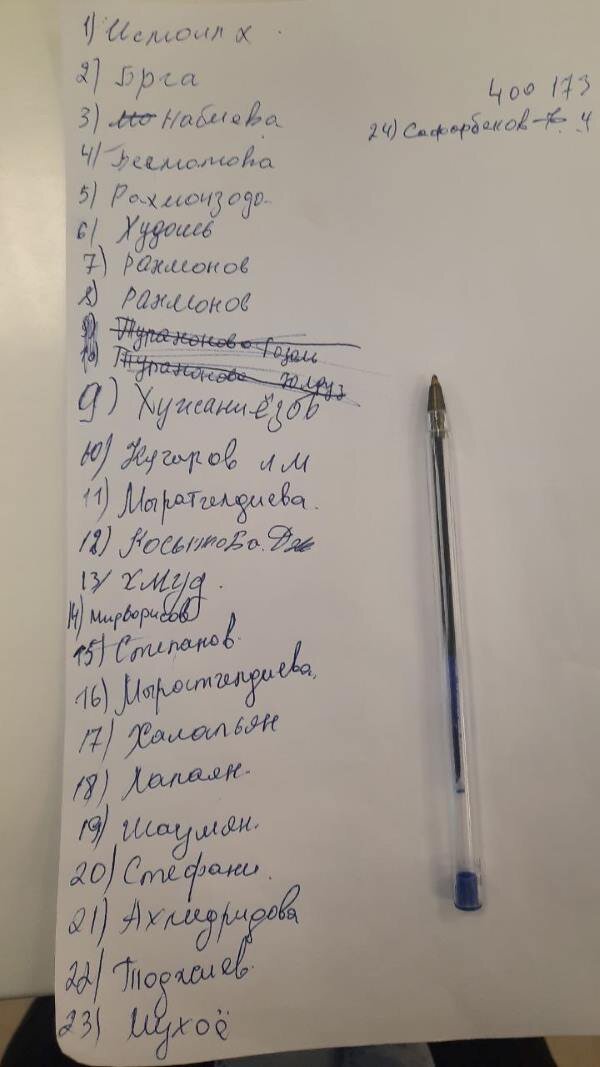 1) Исмоил х
2) Брга
3) Набиева
4) Бесматова
5) Рахмонзода
6) Худоев
7) Рахмонов
8) Рахмонов
9) Турахонова Гозал
10) Турахонова Юлдуз
9) Хужаниёзов
10) Негаров л М
11) Мыратгелдиева.
12) Косымова. Дж
13) ХМУД.
14) Мирворисов
15) Степанов.
16) Мыратгелдиева.
17) Халапьян
18) Папаян.
19) Шаумян.
20) Стефани.
21)
22) Тоджиев.
23)
400 173
24) Сафарбеков